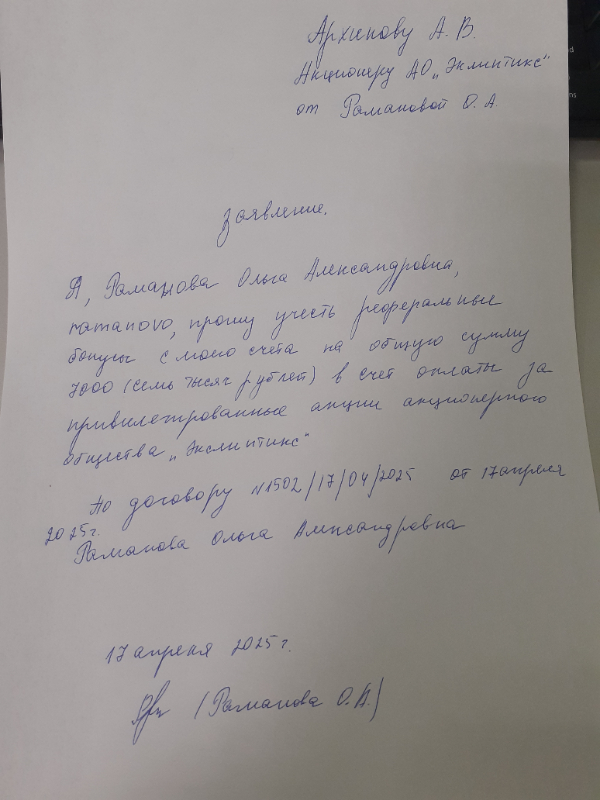 Архипову А. В.
Акционеру АО „Эклиптикс"
от Рамановой О. А.
Заявление.
Я, Раманова Ольга Александровна,
ramanovo, прошу учесть реферальные
бонусы с моего счета на общую сумму
7000 (семь тысяч рублей) в счет оплаты за
привилегированные акции акционерного
общества „Эклиптикс"
По договору N1502/17/04/2025 от 17 апреля
2025г.
Раманова Ольга Александровна
17 апреля 2025 г.
(Раманова О. А.)